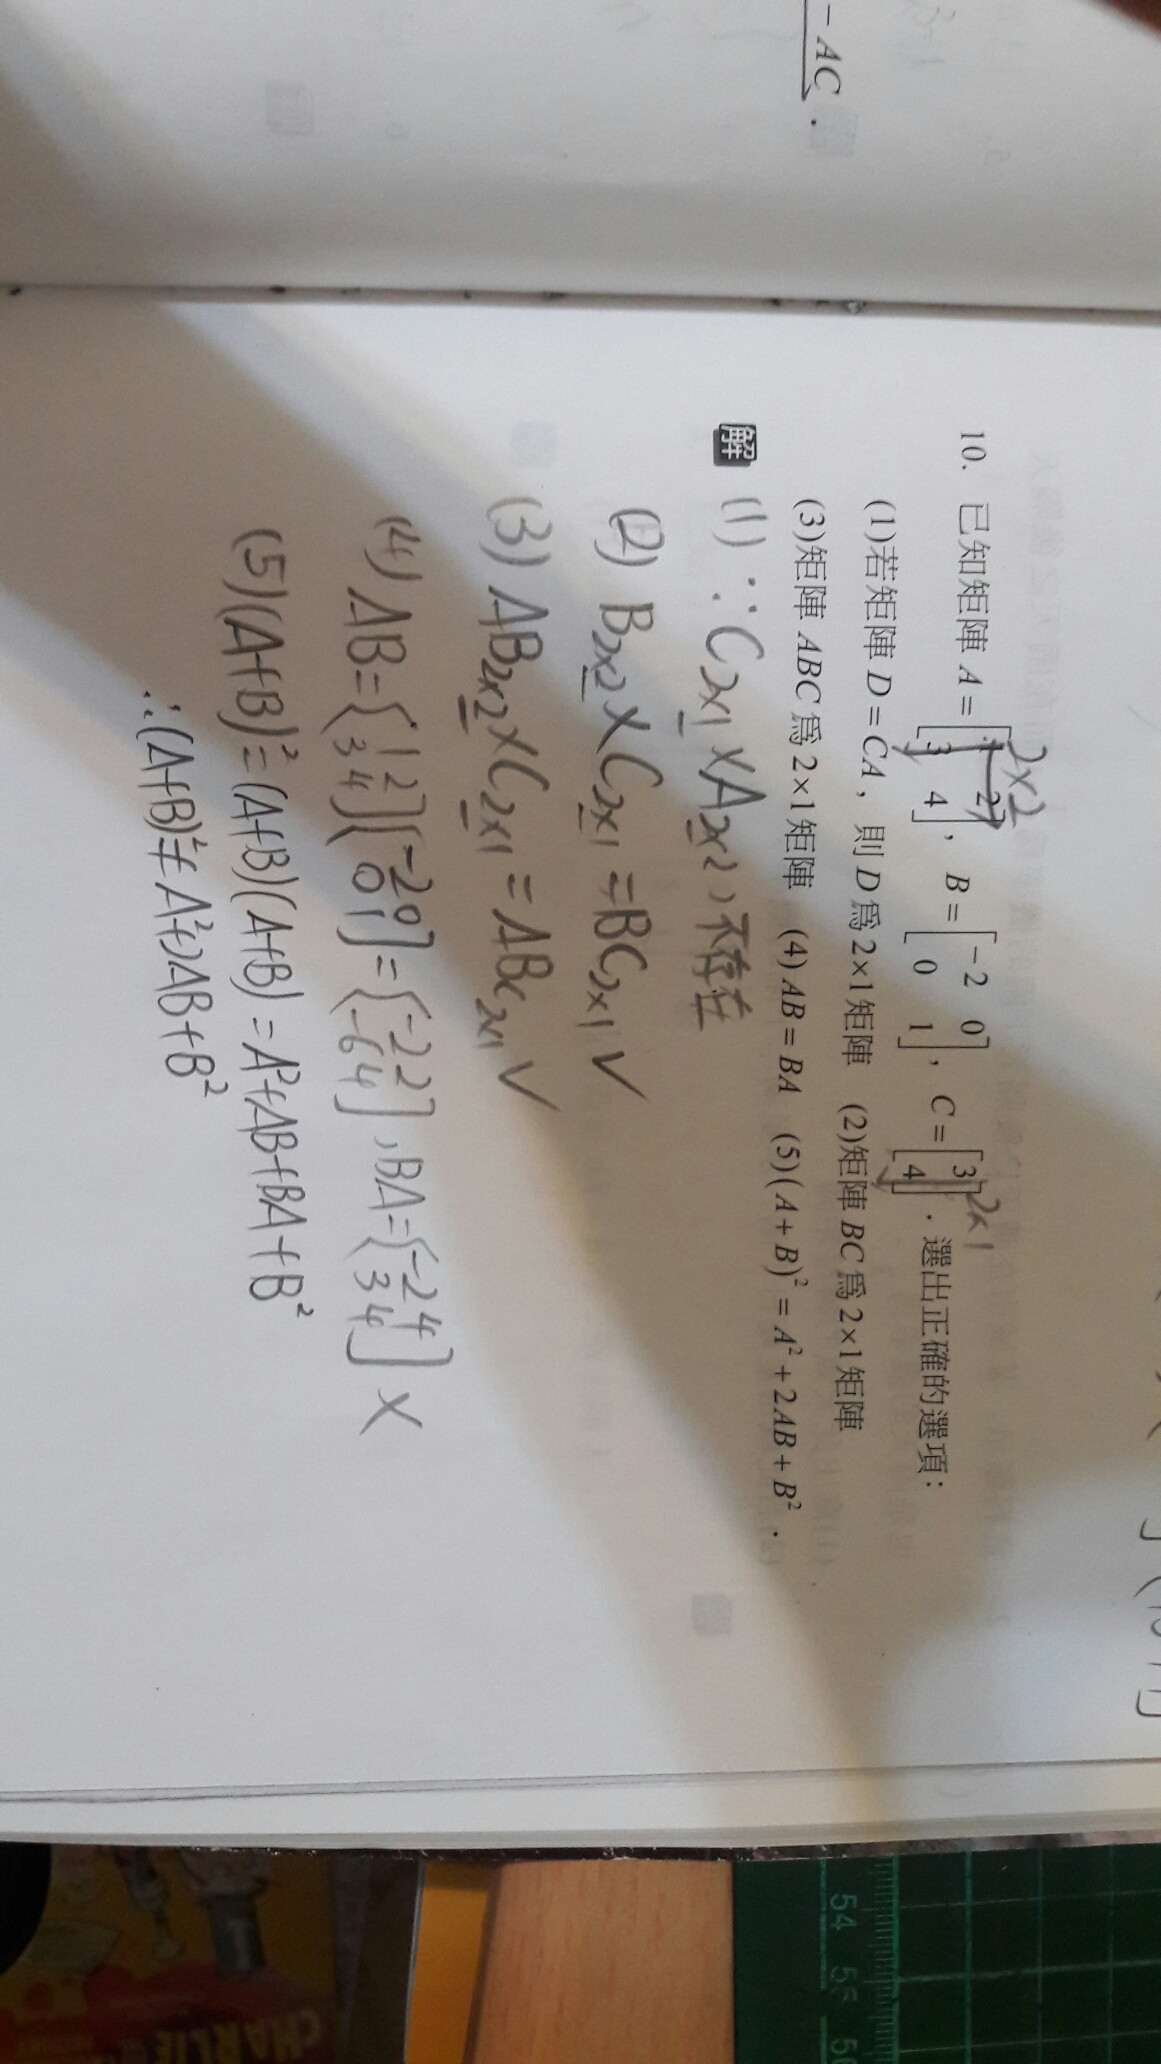 -AC.
10. 已知矩陣 A = [1 2; 3 4], B = [-2 0; 0 1], C = [3; 4]. 選出正確的選項:
2×2
2×1
(1)若矩陣 D = CA, 則 D 為 2×1 矩陣 (2)矩陣 BC 為 2×1 矩陣
(3)矩陣 ABC 為 2×1 矩陣 (4) AB = BA (5) (A + B)² = A² + 2AB + B².
解 (1) ∵C2x1 × A2x2, 不存在
(2) B2x2 × C2x1 = BC2x1 V
(3) AB2x2 × C2x1 = ABC2x1 V
(4) AB = [1 2; 3 4][-2 0; 0 1] = [-2 2; -6 4], BA = [-2 4; 3 4] X
(5) (A+B)² = (A+B)(A+B) = A²+AB+BA+B²
∴(A+B)² ≠ A²+2AB+B²
54 55 56
CHARLIE